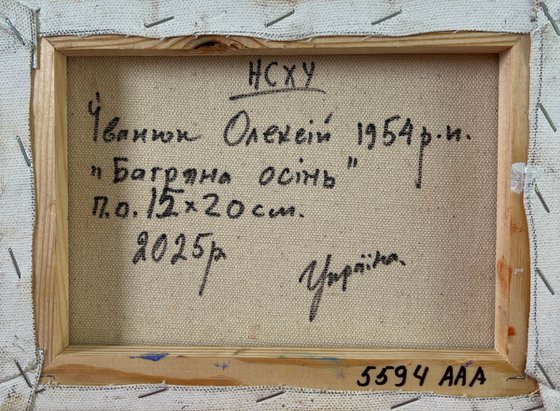 НСХУ
Іванюк Олексій 1954р.н.
"Багряна осінь"
п.о. 15×20см.
2025р
Україна.
5594 ААА